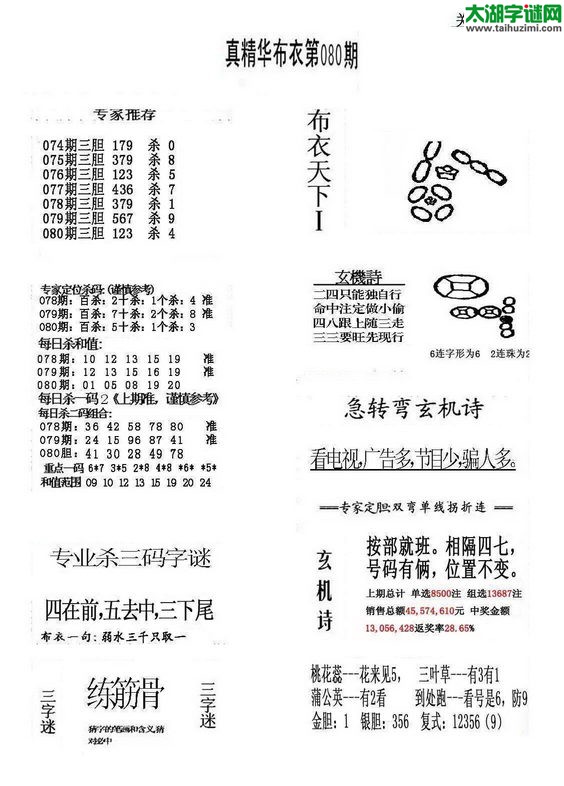 太湖字谜网
www.taihuzimi.com
真精华布衣第080期
专家推荐
074期三胆 179 杀 0
075期三胆 379 杀 8
076期三胆 123 杀 5
077期三胆 436 杀 7
078期三胆 379 杀 1
079期三胆 567 杀 9
080期三胆 123 杀 4
布衣天下I
专家定位杀码:(谨慎参考)
078期: 百杀: 2十杀: 1个杀: 4 准
079期: 百杀: 7十杀: 2个杀: 8 准
080期: 百杀: 5十杀: 1个杀: 3
每日杀和值:
078期: 10 12 13 15 19 准
079期: 10 12 15 16 19 准
080期: 01 05 08 19 20
每日杀一码2《上期准, 谨慎参考》
每日杀二码组合:
078期: 36 42 58 78 80 准
079期: 24 15 96 87 41 准
080胆: 41 30 28 49 78
重点一码 6*7 3*5 2*8 4*8 *6* *5*
和值范围 09 10 12 13 15 19 20 24
玄機詩
二四只能独自行
命中注定做小偷
四八跟上随三走
三三要旺先现行
6连字形为6 2连珠为2
急转弯玄机诗
看电视,广告多,节目少,骗人多。
===专家定胆:双弯单线拐折连===
专业杀三码字谜
四在前,五去中,三下尾
布衣一句: 弱水三千只取一
玄机诗
按部就班。相隔四七,
号码有俩, 位置不变。
上期总计 单选8500注 组选13687注
销售总额45,574,610元 中奖金额
13,056,428返奖率28.65%
三字迷
练筋骨
猜字的笔画和含义,猜
对必中
三字迷
桃花蕊---花来见5, 三叶草---有3有1
蒲公英---有2看 到处跑---看号是6, 防9
金胆: 1 银胆: 356 复式: 12356 (9)